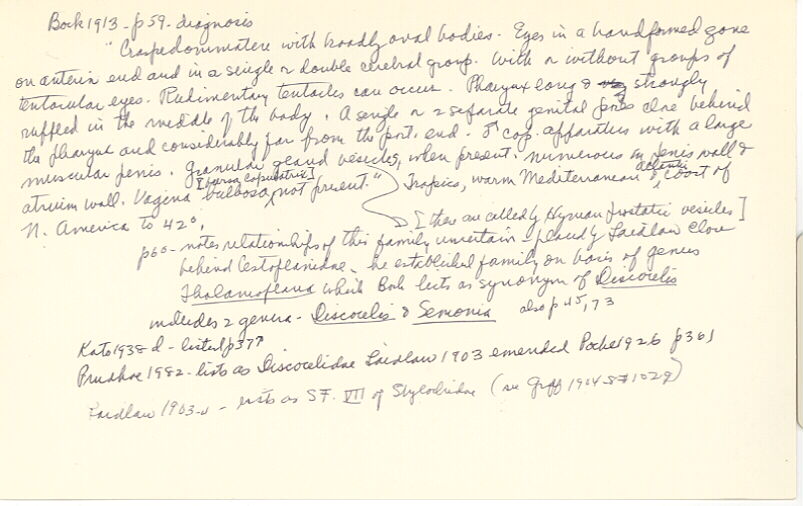 Bock 1913 - p 59 - diagnosis
"Craspedommatere with broadly oval bodies. Eyes in a bandformed zone
on anterior end and in a single or double cerebral group. With or without groups of
tentacular eyes. Rudimentary tentacles can occur. Pharynx long & strongly
ruffled in the middle of the body. A single or 2 separate genital pores close behind
the pharynx and considerably far from the post. end. ♂ cop. apparatus with a large
muscular penis. Granular gland vesicles, when present, numerous in penis wall &
atrium wall. Vagina [bursa copulatrix] bulbosa, not present." Tropics, warm Mediterranean & atlantic coast of
N. America to 42°.
[these are called by Hyman prostatic vesicles]
p60 - notes relationships of this family uncertain - placed by Laidlaw close
behind Cestoplanidae - he established family on basis of genus
Thalamoplana which Bock lists as synonym of Discocelis
includes 2 genera - Discocelis & Semonia also p 45, 73
Kato 1938 d - listed p 377
Prudhoe 1982 - lists as Discocelidae Laidlaw 1903 emended Poche 1926 p 361
Laidlaw 1903-a - lists as SF. VII of Stylochidae (see Graff 1904 SF 1029)